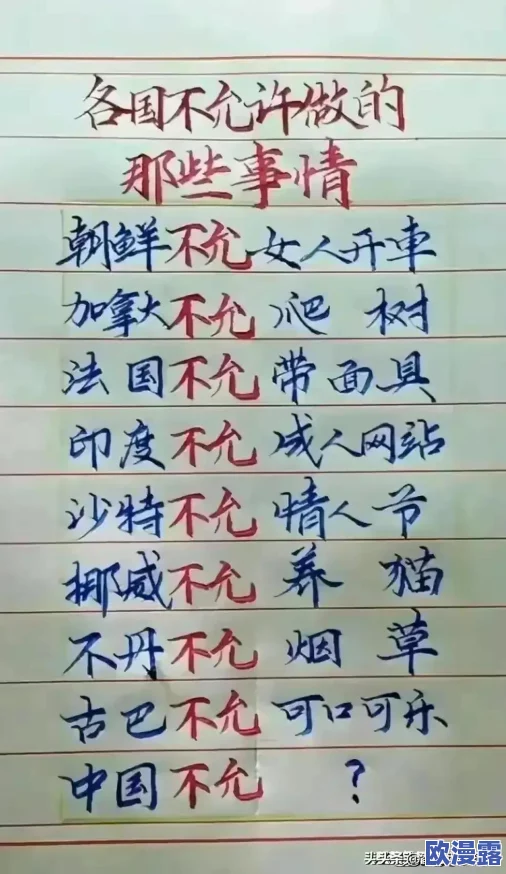 各国不允许做的
那些事情
朝鲜不允女人开車
加拿大不允爬树
法国不允带面具
印度不允成人网站
沙特不允情人节
挪威不允养猫
不丹不允烟草
古巴不允可口可乐
中国不允?
头条
欧漫露